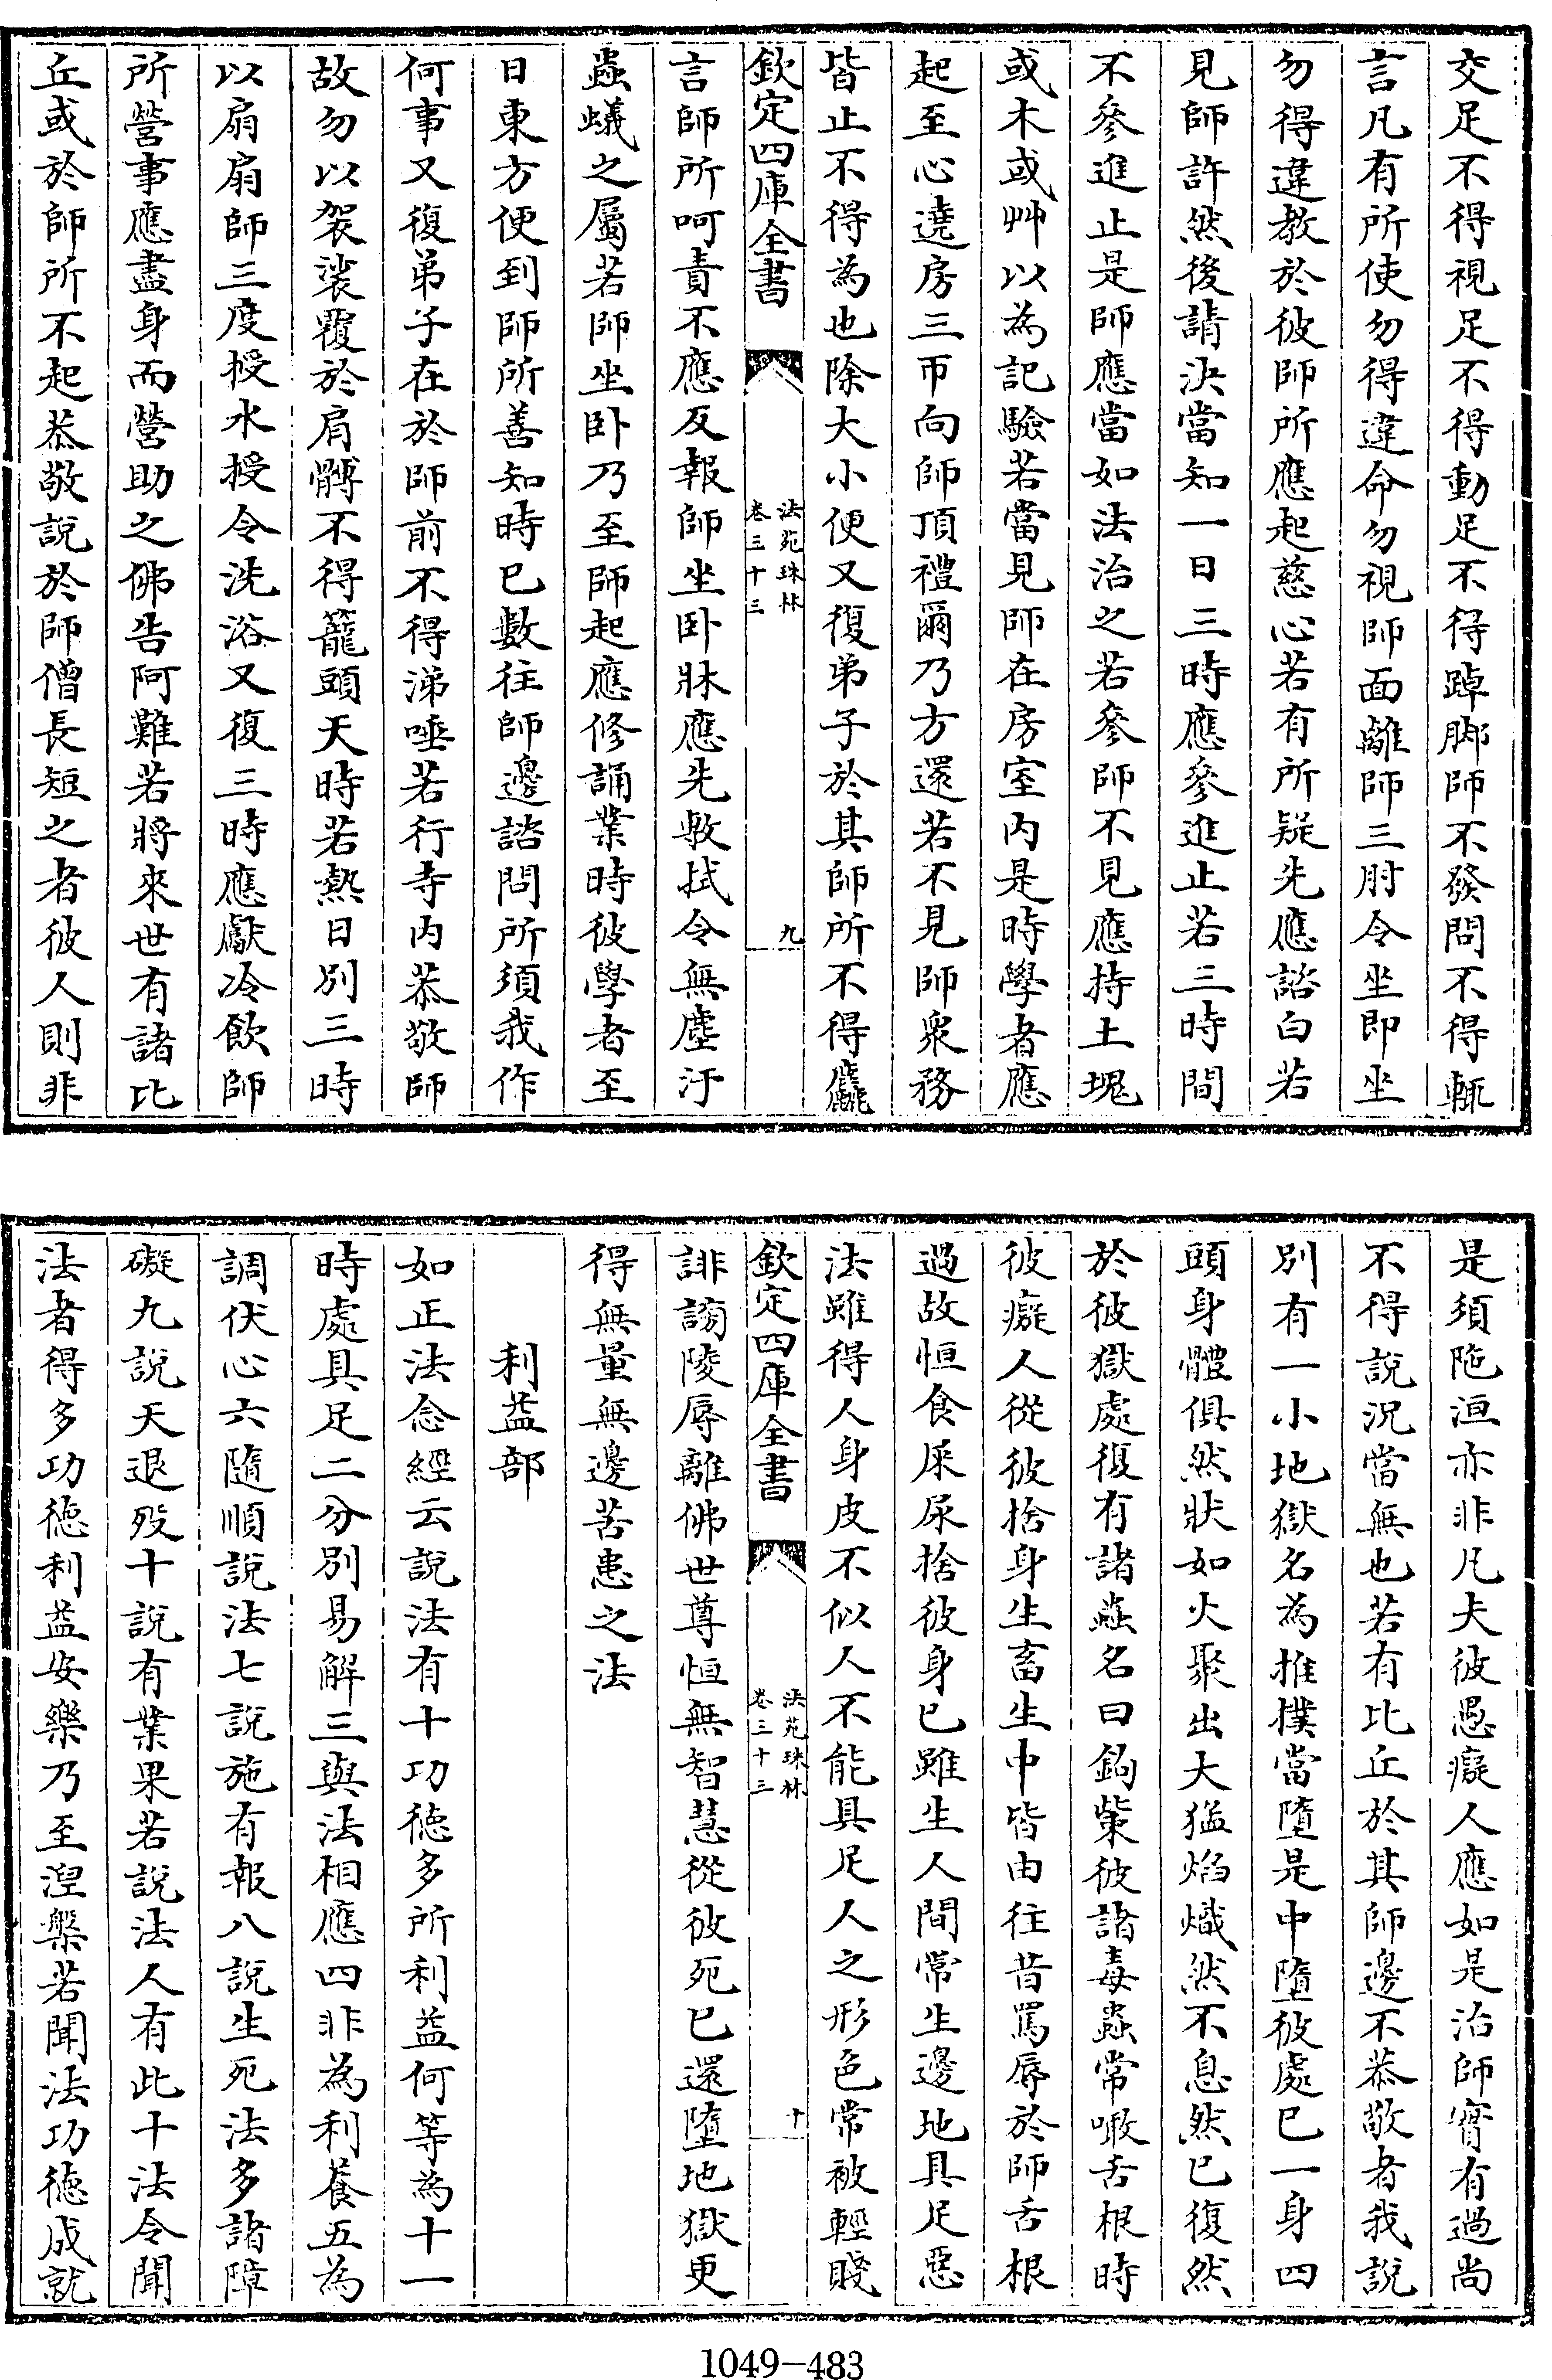 交足不得視足不得動足不得踔脚師不發問不得輒
言凡有所使勿得違命勿視師面離師三肘令坐即坐
勿得違教於彼師所應起慈心若有所疑先應諮白若
見師許然後請決當知一日三時應參進止若三時間
不參進止是師應當如法治之若參師不見應持土塊
或木或艸以為記驗若當見師在房室内是時學者應
起至心遶房三帀向師頂禮爾乃方還若不見師衆務
皆止不得為也除大小便又復弟子於其師所不得麤
欽定四庫全書
法苑珠林
卷三十三
九
言師所呵責不應反報師坐卧牀應先敷拭令無塵汙
蟲蟻之屬若師坐卧乃至師起應修誦業時彼學者至
日東方便到師所善知時已數往師邊諮問所須我作
何事又復弟子在於師前不得涕唾若行寺内恭敬師
故勿以袈裟覆於肩髆不得籠頭天時若熱日別三時
以扇扇師三度授水授令洗浴又復三時應獻冷飲師
所營事應盡身而營助之佛告阿難若將來世有諸比
丘或於師所不起恭敬說於師僧長短之者彼人則非
是須陁洹亦非凡夫彼愚癡人應如是治師實有過尚
不得說況當無也若有比丘於其師邊不恭敬者我說
別有一小地獄名為推撲當墮是中墮彼處已一身四
頭身體俱然狀如火聚出大猛焰熾然不息然已復然
於彼獄處復有諸蟲名曰鉤觜彼諸毒蟲常噉舌根時
彼癡人從彼捨身生畜生中皆由往昔罵辱於師舌根
過故恒食屎尿捨彼身已雖生人間常生邊地具足惡
法雖得人身皮不似人不能具足人之形色常被輕賤
欽定四庫全書
法苑珠林
卷三十三
十
誹謗陵辱離佛世尊恒無智慧從彼死已還墮地獄更
得無量無邊苦患之法
利益部
如正法念經云說法有十功德多所利益何等為十一
時處具足二分別易解三與法相應四非為利養五為
調伏心六隨順說法七說施有報八說生死法多諸障
礙九說天退歿十說有業果若說法人有此十法令聞
法者得多功德利益安樂乃至涅槃若聞法功德成就
1049-483